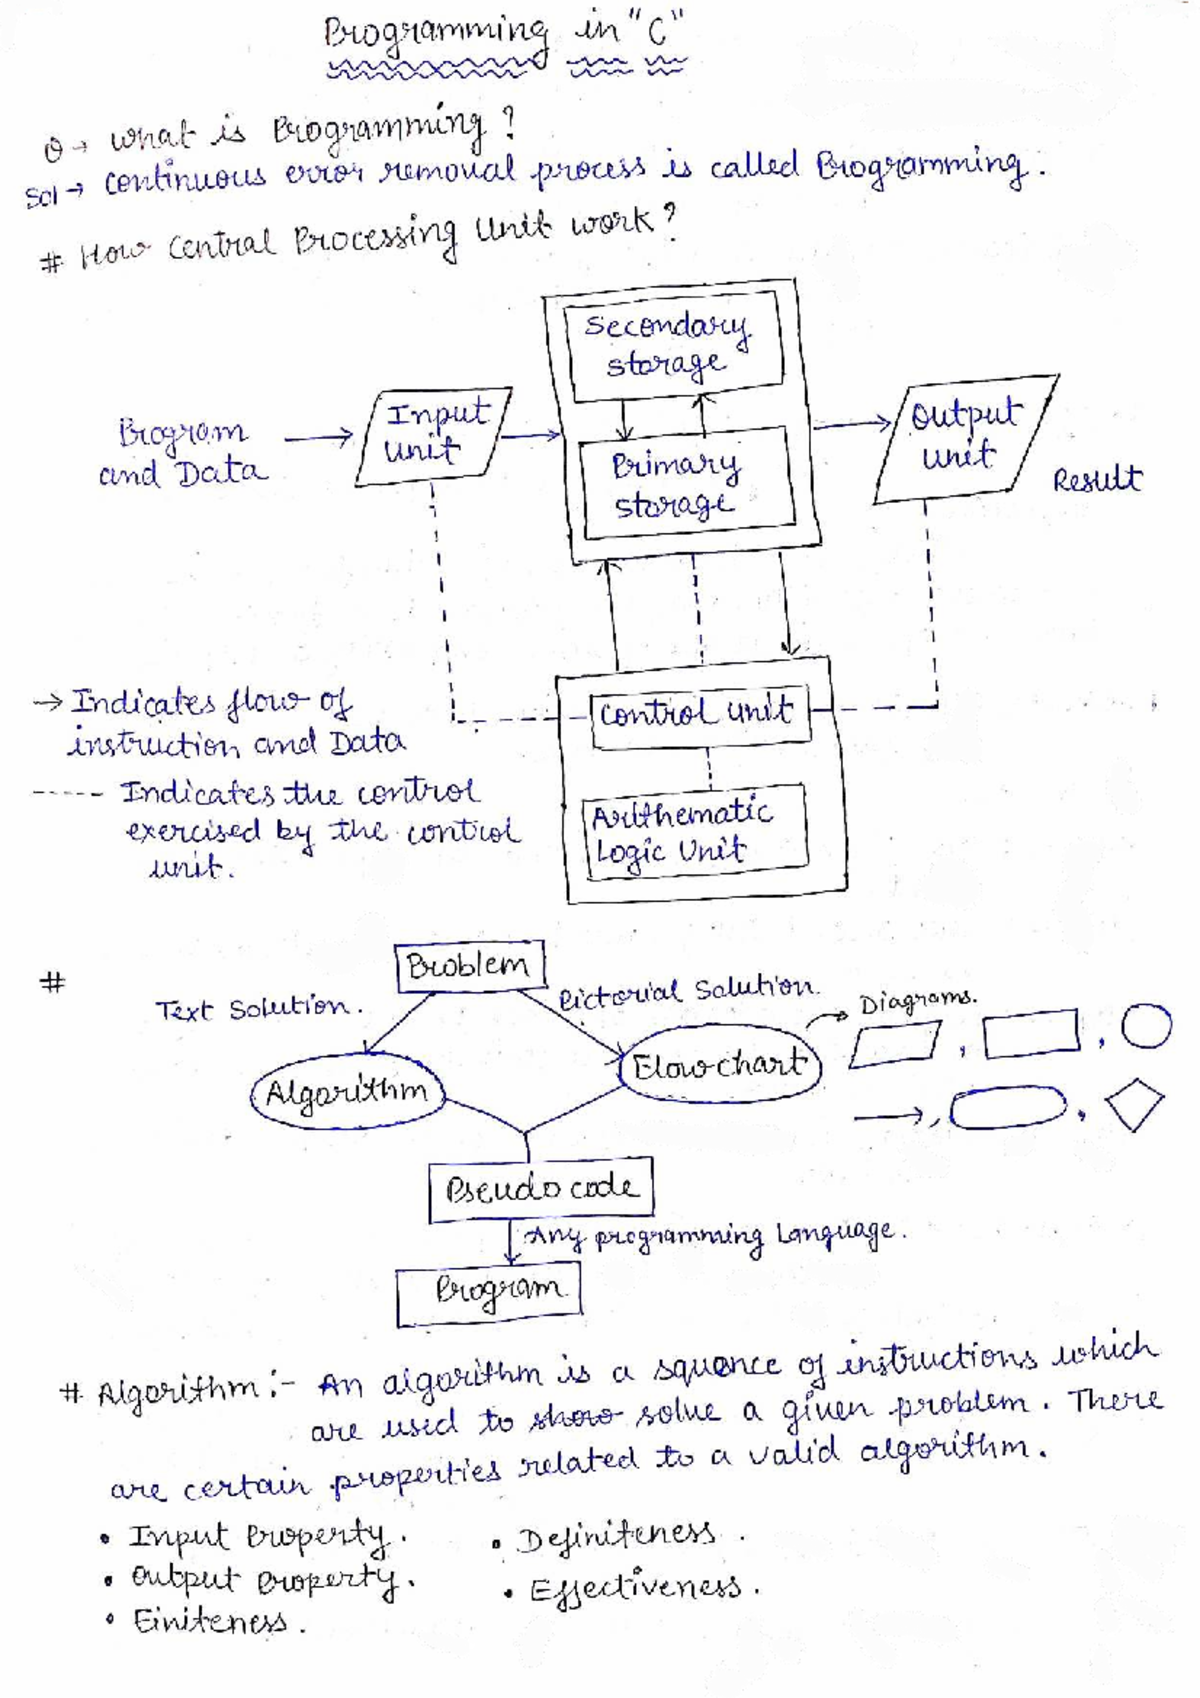 Programming in "C"
Q → What is Programming ?
Sol → Continuous error removal process is called Programming.
# How Central Processing Unit work?
Secondary
storage
Program
and Data
Input
Unit
Primary
storage
Output
unit
Result
→ Indicates flow of
instruction and Data
----- Indicates the control
exercised by the control
unit.
Control Unit
Arithematic
Logic Unit
#
Problem
Text Solution.
Pictorial Solution.
Diagrams.
Algorithm
Flowchart
Pseudo code
Any programming Language.
Program
# Algorithm :- An algorithm is a squence of instructions which
are used to show solve a given problem. There
are certain properties related to a valid algorithm.
• Input Property.
• Definiteness.
• Output Property.
• Effectiveness.
• Finiteness.